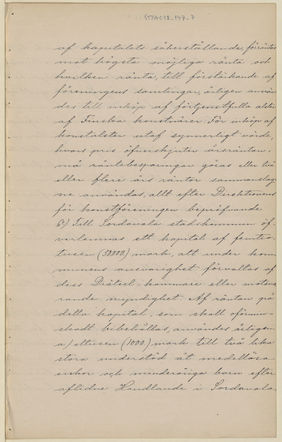 af kapitalets säkerställande, förräntas
mot högsta möjliga ränta och
hvilken ränta, till förstärkande af
föreningens samlingar, årligen använ
des till inköp af förtjenstfulla alster
af Finska konstnärer. För inköp af
konstalster utaf synnerligt värde,
hvars pris öfverskjuter årsräntan,
må räntebesparingar göras eller två
eller flera års räntor sammanslag
ne användas, allt efter Direktionens
för konstföreningen bepröfvande.
6) Till Sordavala stadskommun öf-
verlemnas ett kapital af femtio
tusen (50000) mark, att under kom
munens ansvarighet förvaltas af
dess Drätsel-kammare eller motsva
rande myndighet. Af räntan på
detta kapital, som skall oförmin-
skadt bibehållas, användes årligen
a) ettusen (1000) mark till två lika
stora understöd åt medellösa
enkor och minderåriga barn efter
aflidne Handlande i Sordavala